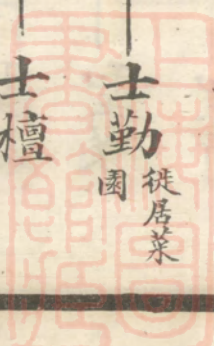 士勤 徙居菜
園
士檀